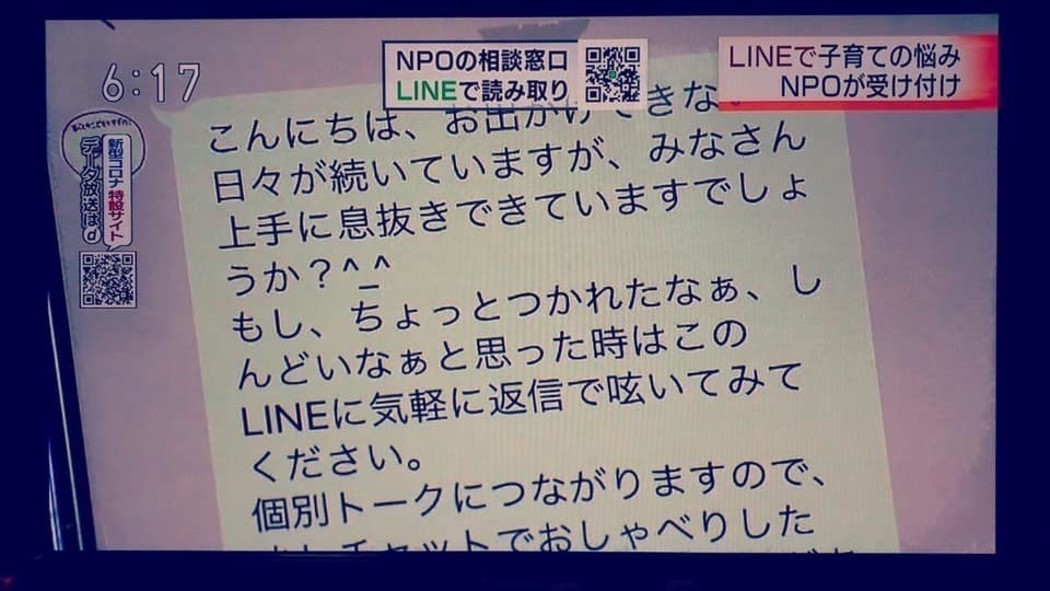 6:17
NPOの相談窓口
LINEで読み取り
LINEで子育ての悩み
NPOが受け付け
新型コロナ 特設サイト
データ放送は d
こんにちは、お出かけできない
日々が続いていますが、みなさん
上手に息抜きできていますでしょ
うか?^_^
もし、ちょっとつかれたなぁ、し
んどいなぁと思った時はこの
LINEに気軽に返信で呟いてみて
ください。
個別トークにつながりますので、
チャットでおしゃべりした